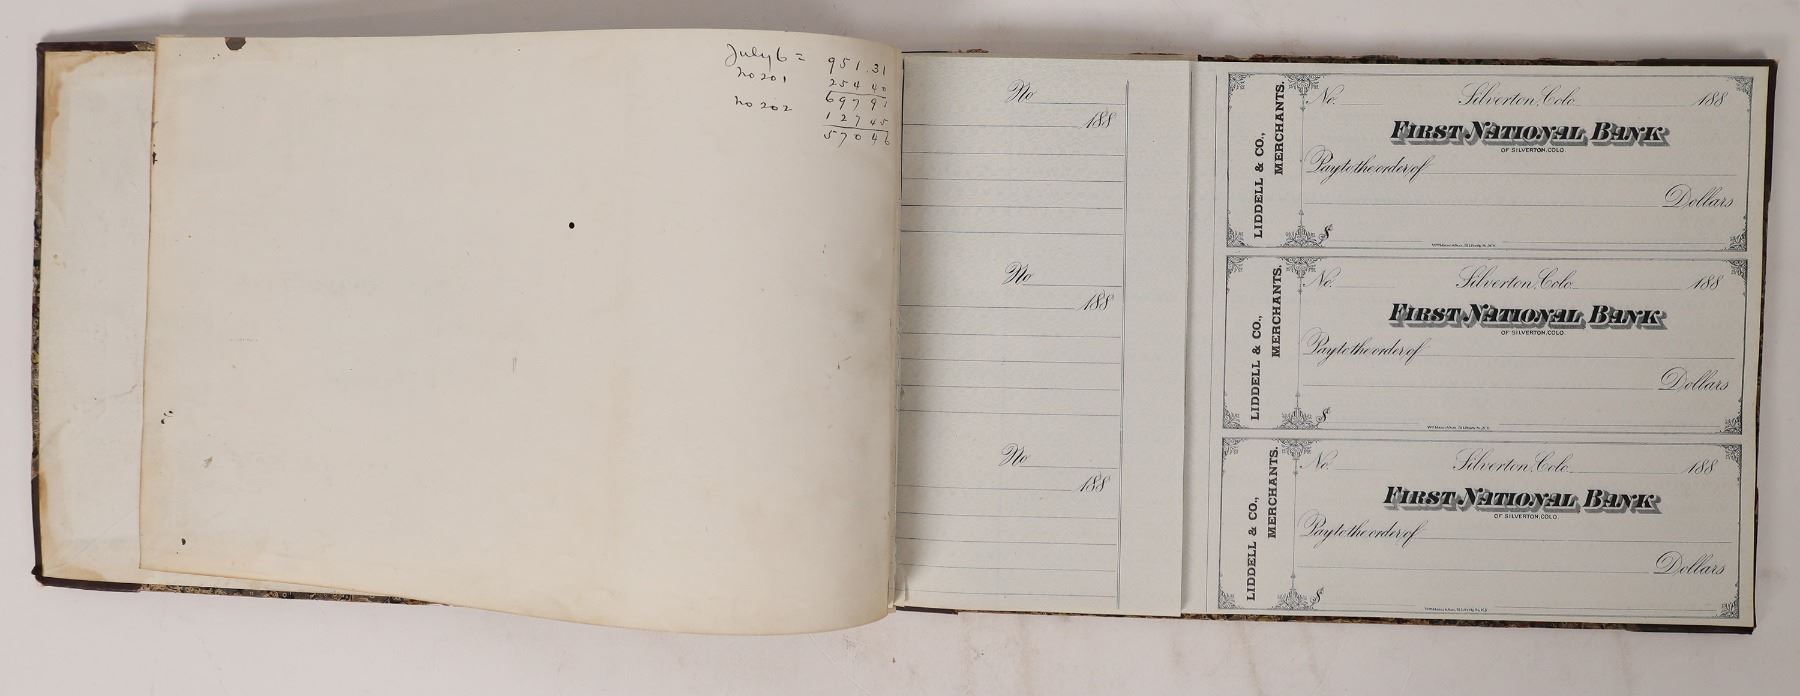 July 6 = 951.31
No 201 254 40
697 91
No 202 127 45
570 46
No
188
No
188
No
188
LIDDELL & CO.,
MERCHANTS.
No. Silverton, Colo. 188
FIRST NATIONAL BANK
OF SILVERTON, COLO.
Pay to the order of
Dollars
$
LIDDELL & CO.,
MERCHANTS.
No. Silverton, Colo. 188
FIRST NATIONAL BANK
OF SILVERTON, COLO.
Pay to the order of
Dollars
$
LIDDELL & CO.,
MERCHANTS.
No. Silverton, Colo. 188
FIRST NATIONAL BANK
OF SILVERTON, COLO.
Pay to the order of
Dollars
$